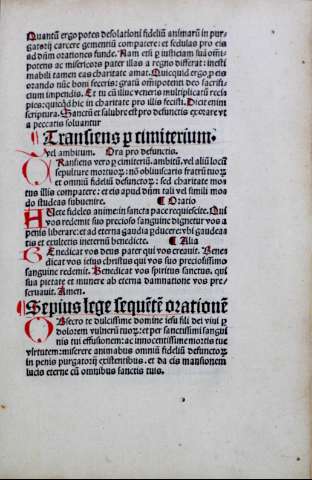 Quantū ergo potes desolationi fideliū animarū in pur-
gatorij carcere gementiū compatere: et sedulas pro eis
ad dūm orationes funde. Nam etsi p iusticiam suā omi-
potens ac misericors pater illas a regno differat: inesti
mabili tamen eas charitate amat. Quicquid ergo p eis
orando nūc boni feceris: gratū omipotenti deo sacrifi-
cium impendis. Et tu cū illuc veneris multiplicatū reci-
pies: quicqd hic in charitate pro illis fecisti. Dicit enim
scriptura. Sanctū et salubre est pro defunctis exorare vt
a peccatis soluantur
Transiens p cimiterium.
vel ambitum. Ora pro defunctis.
TRansiens vero p cimiteriū. ambitū. vel aliū locū
sepulture mortuoꝝ: nō obliuiscaris fratrū tuoꝝ
et omniū fideliū defunctoꝝ: sed charitate mo-
tus illis compatere: et eis apud dūm tali vel simili mo-
do studeas subuenire. ¶ Oratio
AUete fideles anime in sancta pace requiescite. Qui
vos redemit suo precioso sanguine dignetur vos a
penis liberare: et ad eterna gaudia pducere: vbi gaudea
tis et exultetis ineternū benedicte. ¶ Alia
BEnedicat vos deus pater qui vos creauit. Bene
dicat vos iesus christus qui vos suo preciosissimo
sanguine redemit. Benedicat vos spiritus sanctus. qui
sua pietate et munere ab eterna damnatione vos pre-
seruauit. Amen.
¶ Sepius lege sequētē orationē
OBsecro te dulcissime domine iesu fili dei viui p
dolorem vulnerū tuoꝝ: et per sanctissimi sangui
nis tui effusionem: ac innocentissime mortis tue
virtutem: miserere animabus omniū fideliū defunctoꝝ
in penis purgatorij existentibus. et da eis mansionem
lucis eterne cū omnibus sanctis tuis.